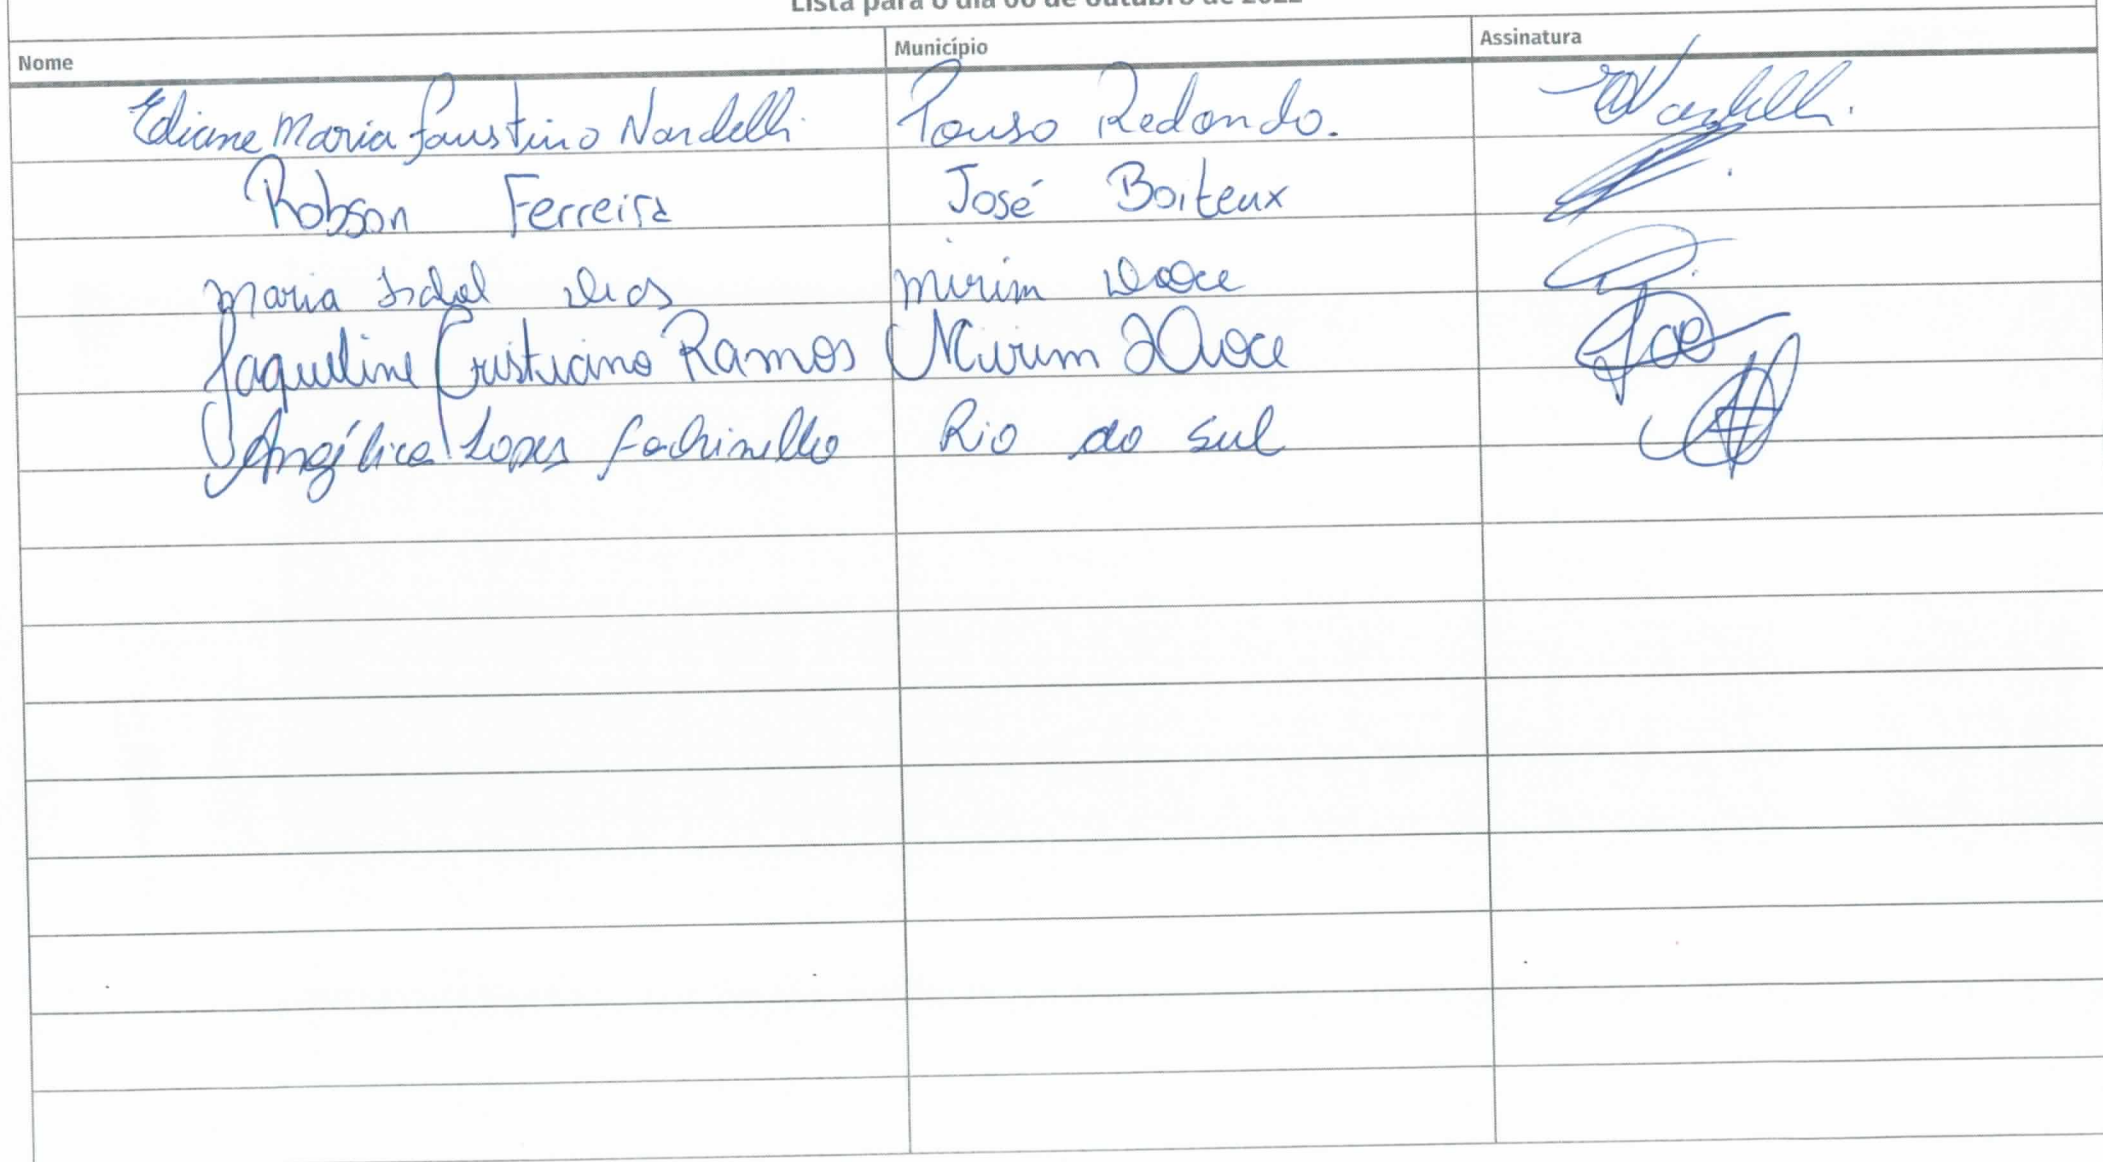 Lista para o dia 06 de outubro de 2022
Nome Município Assinatura
Ediane Maria Faustino Nardelli Pouso Redondo. Nardelli.
Robson Ferreira José Boiteux
Maria Isabel Dias Mirim Doce
Jaqueline Cristiano Ramos Mirim Doce Jae
Angélica Lopes Fachinello Rio do Sul